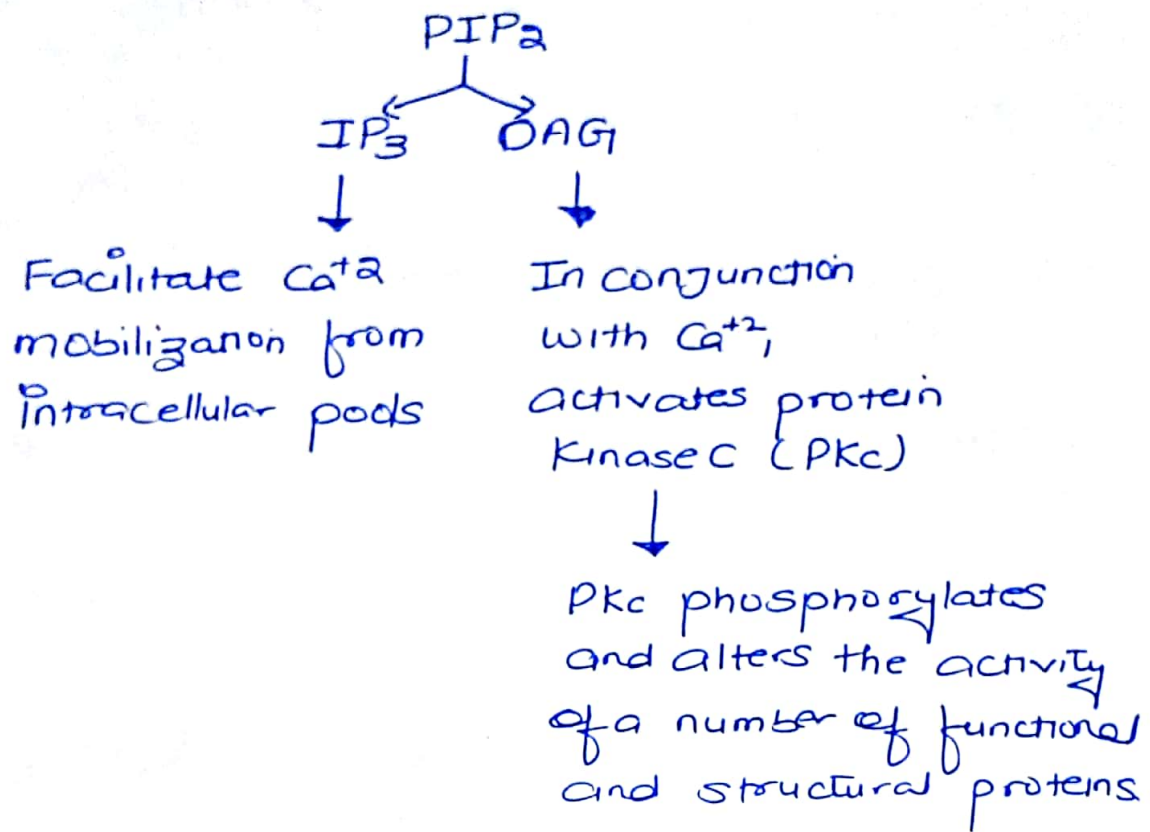 PIP2
IP3 DAG
Facilitate Ca+2
mobilization from
intracellular pools
In conjunction
with Ca+2,
activates protein
Kinase C (PKc)
PKc phosphorylates
and alters the activity
of a number of functional
and structural proteins